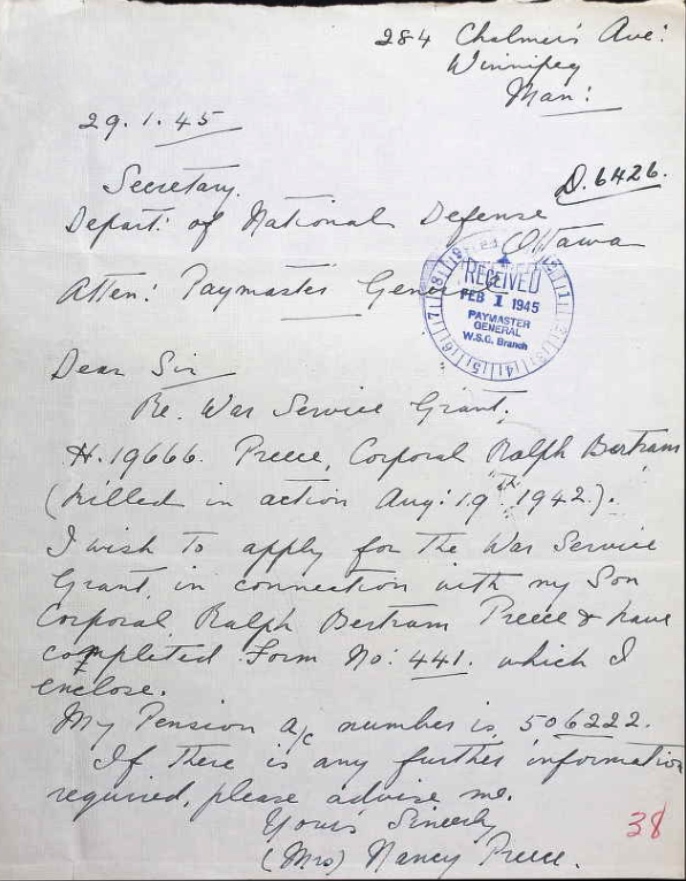 284 Chalmers Ave:
Winnipeg
Man:
29.1.45
D.6426.
Secretary.
Depart: of National Defense
Ottawa
Atten: Paymaster General
RECEIVED
FEB 1 1945
PAYMASTER
GENERAL
W.S.G. Branch
Dear Sir
Re. War Service Grant.
H.19666. Preece, Corporal Ralph Bertram
(killed in action Aug: 19th 1942.).
I wish to apply for the War Service
Grant, in connection with my Son
Corporal Ralph Bertram Preece & have
completed Form No: 441. which I
enclose.
My Pension a/c number is 506222.
If there is any further information
required, please advise me.
Yours Sincerely
(Mrs) Nancy Preece.
38